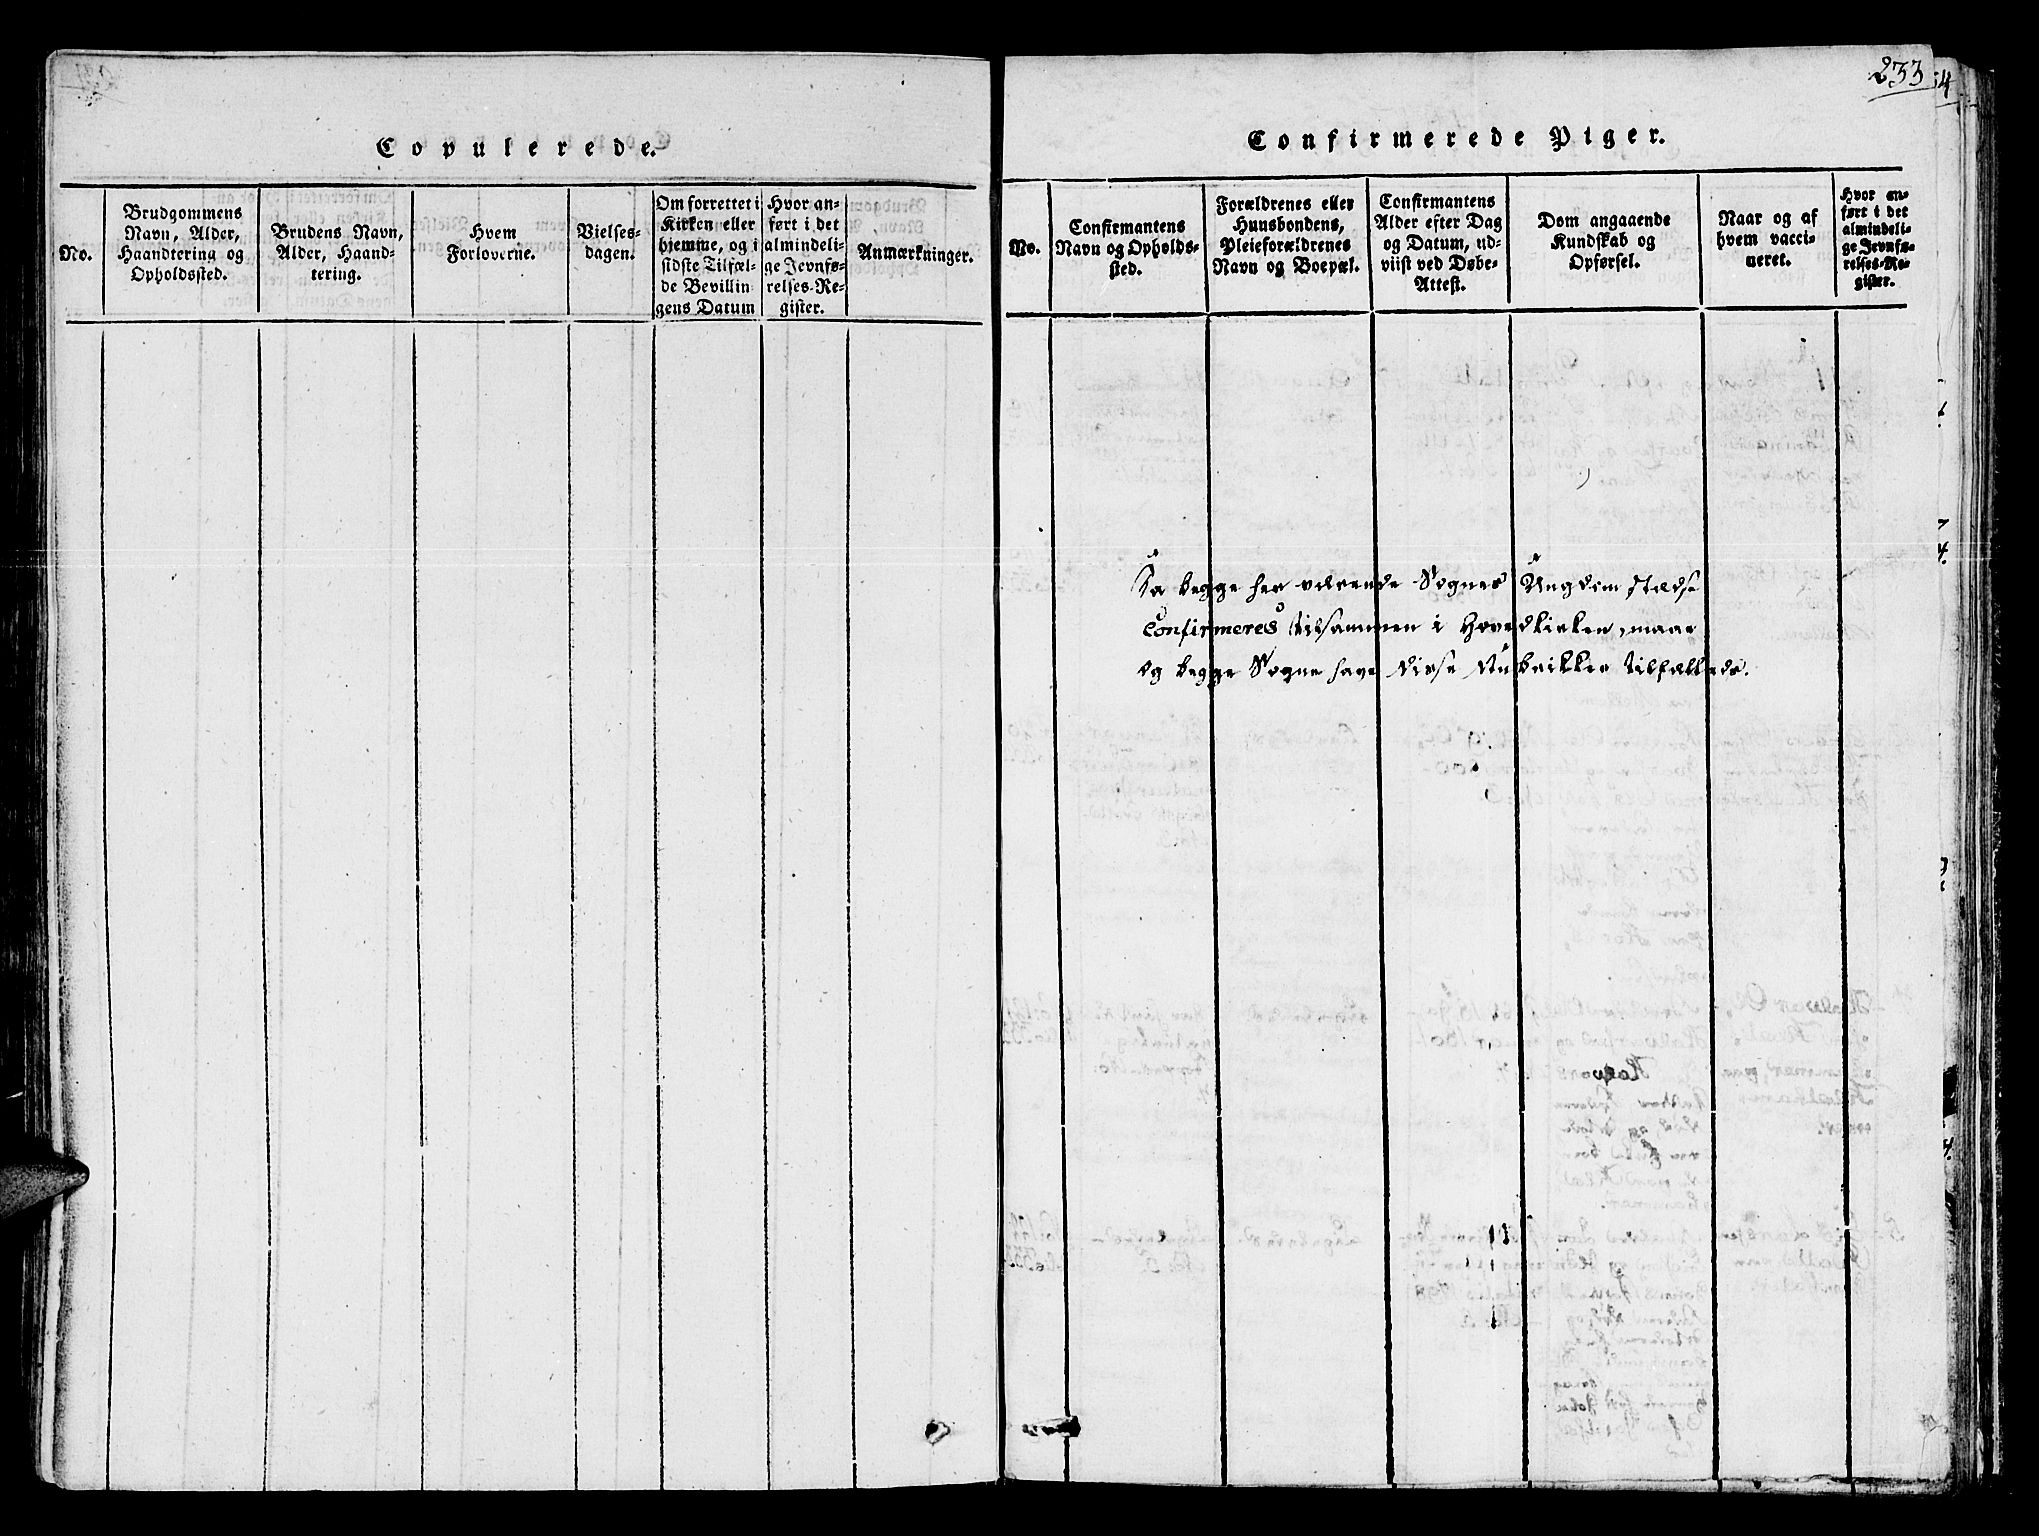 Copulerede.
No.
Brudgommens
Navn, Alder,
Haandtering og
Opholdssted.
Brudens Navn,
Alder, Haand-
tering.
Hvem
Forloverne.
Vielses-
dagen.
Om forrettet i
Kirken eller
hjemme, og i
sidste Tilfæl-
de Bevillin-
gens Datum
Hvor an-
ført i det
almindeli-
ge Jevnfø-
relses-Re-
gister.
Anmærkninger.
233
4
Confirmerede Piger.
No.
Confirmantens
Navn og Opholds-
sted.
Forældrenes eller
Huusbondens,
Pleieforældrenes
Navn og Boepæl.
Confirmantens
Alder efter Dag
og Datum, ud-
viist ved Døbe-
Attest.
Dom angaaende
Kundskab og
Opførsel.
Naar og af
hvem vacci-
neret.
Hvor an-
ført i det
almindeli-
ge Jevnfø-
relses-Re-
gister.
Da begge her værende Sognes Ungdom stedse
confirmeres tilsammen i Hovedkirken, maae
og begge Sogne have disse Rubrikker tilfælleds.